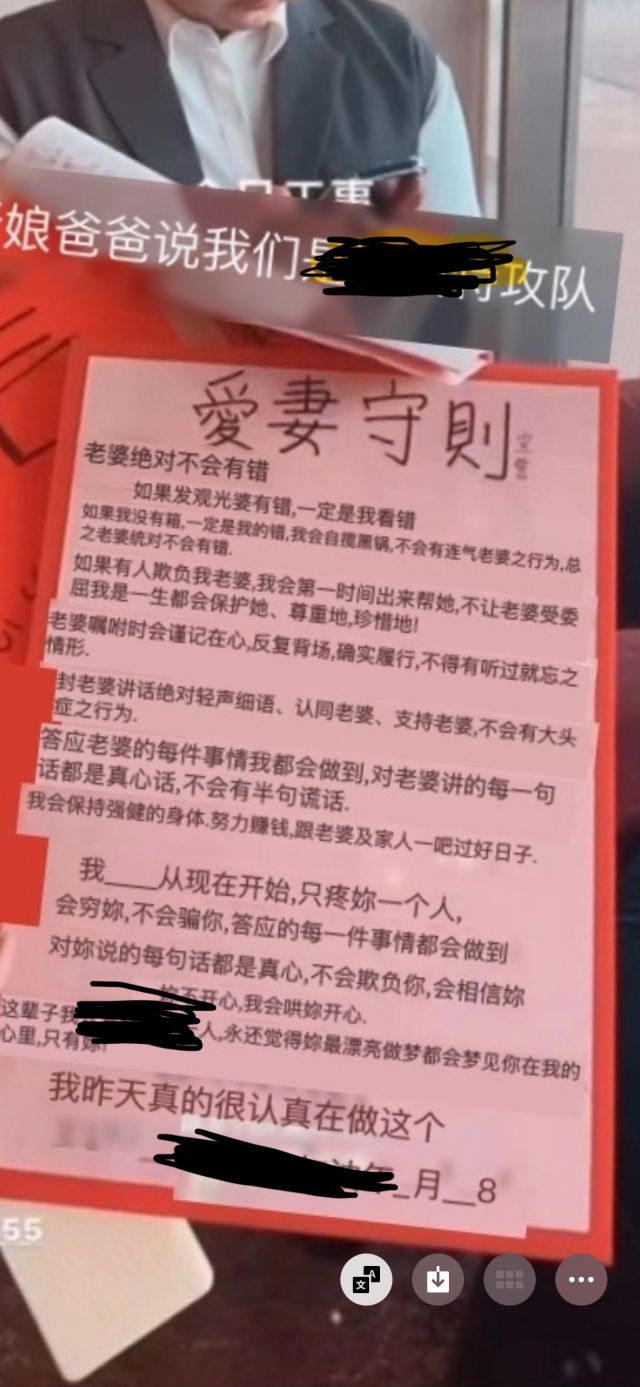 娘爸爸说我们
攻队
愛妻守則
老婆绝对不会有错
如果发观光婆有错,一定是我看错
如果我没有箱,一定是我的错,我会自揽黑锅,不会有连气老婆之行为,总
之老婆统对不会有错.
如果有人欺负我老婆,我会第一时间出来帮她,不让老婆受委
屈我是一生都会保护她、尊重地,珍惜地!
老婆嘱咐时会谨记在心,反复背场,确实履行,不得有听过就忘之
情形.
封老婆讲话绝对轻声细语、认同老婆、支持老婆,不会有大头
症之行为.
答应老婆的每件事情我都会做到,对老婆讲的每一句
话都是真心话,不会有半句谎话.
我会保持强健的身体.努力赚钱,跟老婆及家人一吧过好日子.
我____从现在开始,只疼妳一个人,
会穷妳,不会骗你,答应的每一件事情都会做到
对妳说的每句话都是真心,不会欺负你,会相信妳
不开心,我会哄妳开心.
这辈子我 人,永还觉得妳最漂亮做梦都会梦见你在我的
心里,只有妳!
我昨天真的很认真在做这个
年_月__8
55